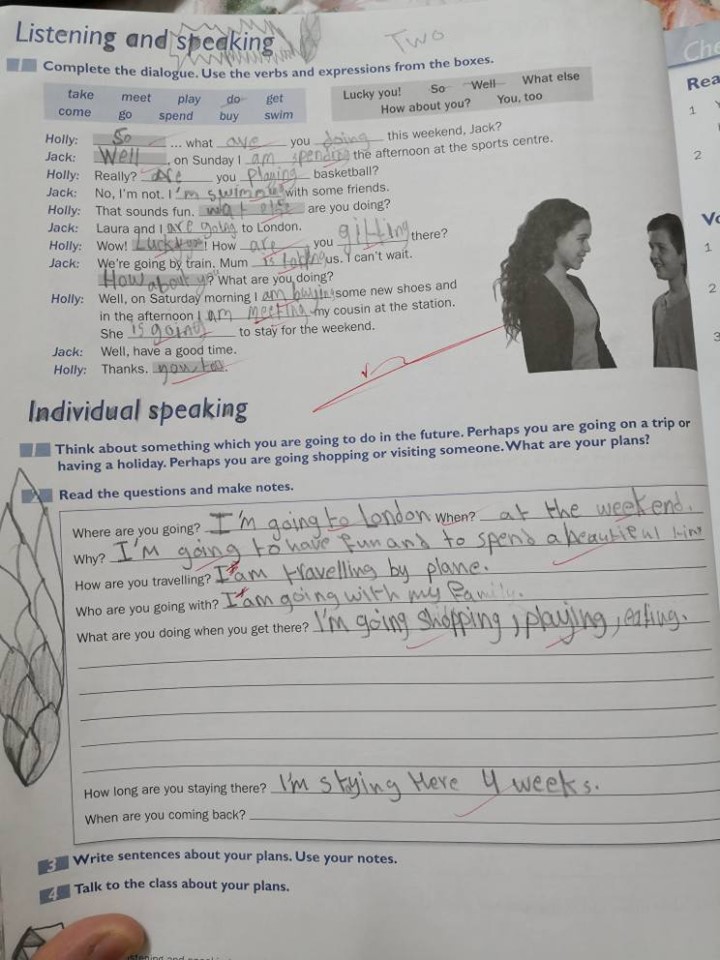 Listening and speaking
Two
Che
Complete the dialogue. Use the verbs and expressions from the boxes.
take meet play do get
come go spend buy swim
Lucky you! So Well What else
How about you? You, too
Rea
1
2
Vo
1
2
3
Holly: So ... what are you doing this weekend, Jack?
Jack: Well, on Sunday I am spending the afternoon at the sports centre.
Holly: Really? Are you planing basketball?
Jack: No, I'm not. I'm swimming with some friends.
Holly: That sounds fun. wat else are you doing?
Jack: Laura and I are going to London.
Holly: Wow! ! How are you gitting there?
Jack: We're going by train. Mum is us. I can't wait.
How about y? What are you doing?
Holly: Well, on Saturday morning I am some new shoes and
in the afternoon I am meeting my cousin at the station.
She is going to stay for the weekend.
Jack: Well, have a good time.
Holly: Thanks. you too.
Individual speaking
Think about something which you are going to do in the future. Perhaps you are going on a trip or
having a holiday. Perhaps you are going shopping or visiting someone. What are your plans?
Read the questions and make notes.
Where are you going? I'm going to London When? at the weekend.
Why? I'M going to have fun and to spend a beautiful
How are you travelling? I'am travelling by plane.
Who are you going with? I'am going with my family.
What are you doing when you get there? I'm going shopping, playing, eating.
How long are you staying there? I'm stying Here 4 weeks.
When are you coming back?
3 Write sentences about your plans. Use your notes.
4 Talk to the class about your plans.